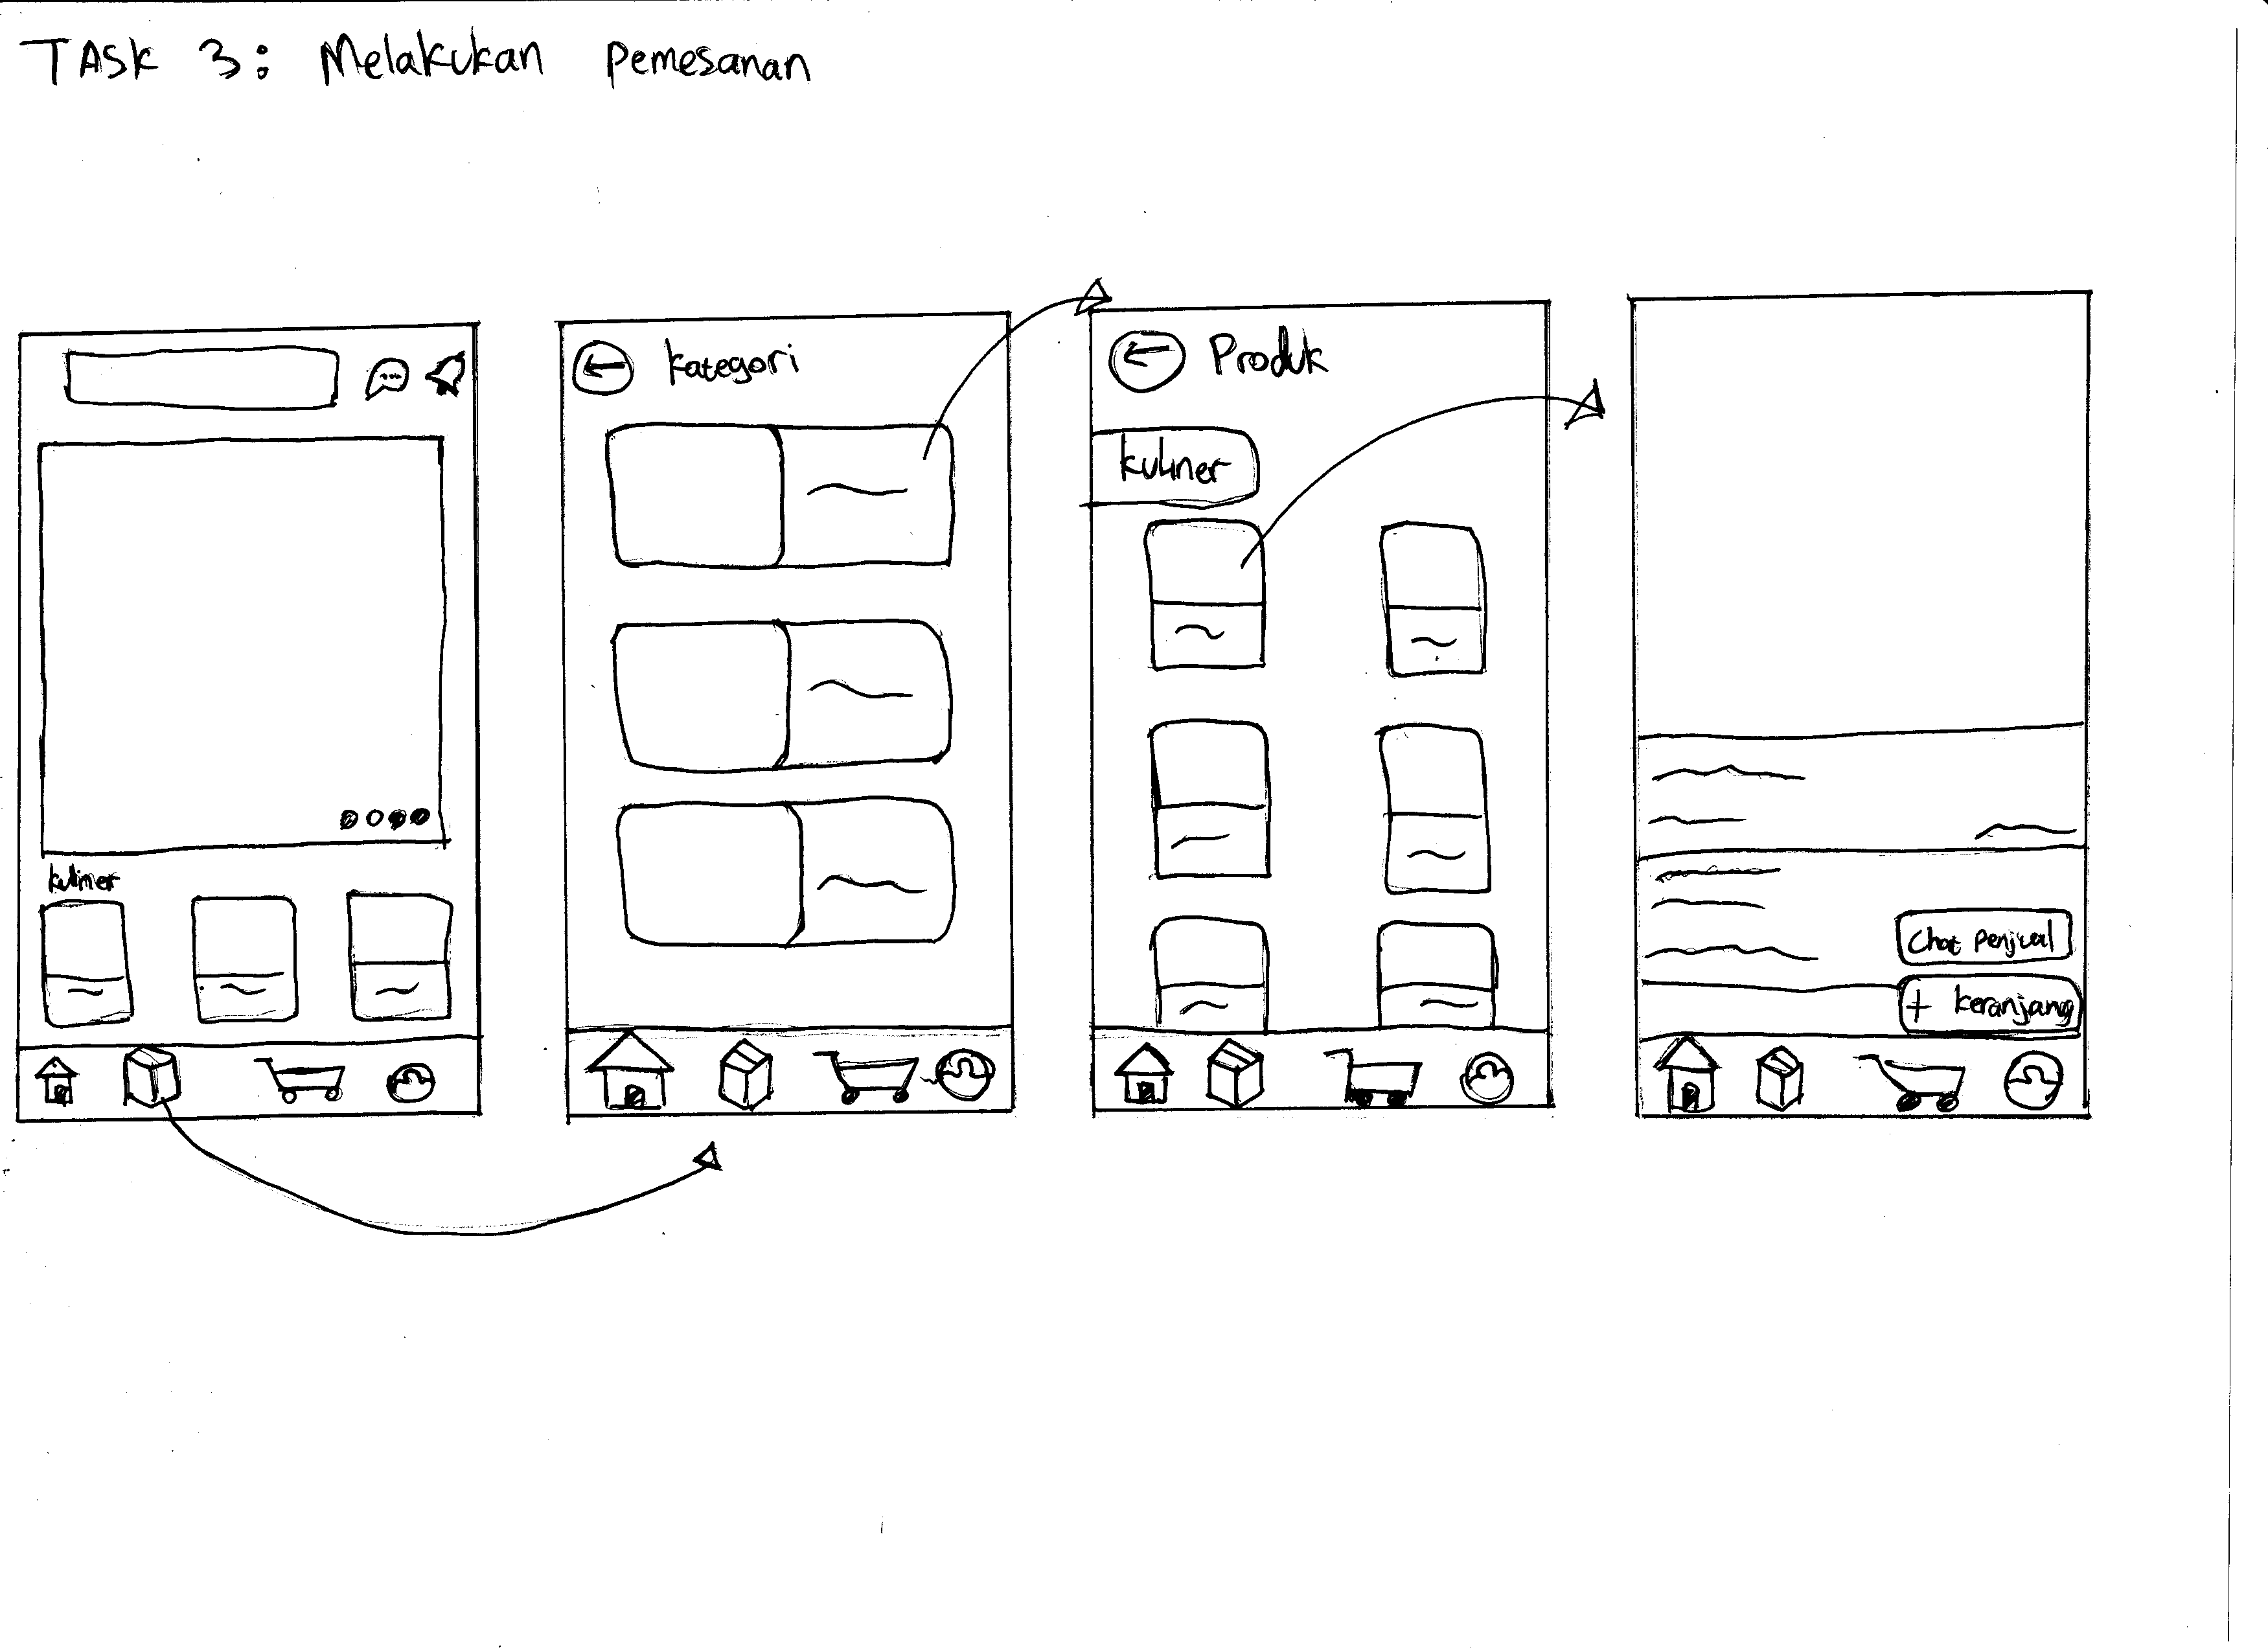 TASK 3: Melakukan Pemesanan
Kuliner
Kategori
Produk
Kuliner
Chat Penjual
+ Keranjang